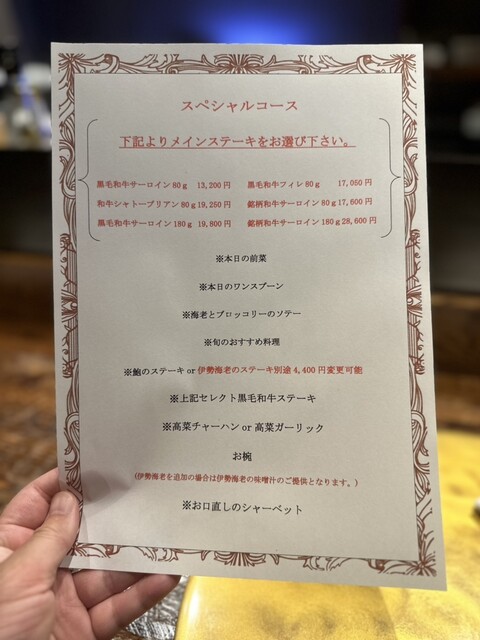 スペシャルコース
下記よりメインステーキをお選び下さい。
黒毛和牛サーロイン80g 13,200円 黒毛和牛フィレ80g 17,050円
和牛シャトーブリアン80g19,250円 銘柄和牛サーロイン80g17,600円
黒毛和牛サーロイン180g 19,800円 銘柄和牛サーロイン180g28,600円
※本日の前菜
※本日のワンスプーン
※海老とブロッコリーのソテー
※旬のおすすめ料理
※鮑のステーキ or 伊勢海老のステーキ別途4,400円変更可能
※上記セレクト黒毛和牛ステーキ
※高菜チャーハン or 高菜ガーリック
お椀
(伊勢海老を追加の場合は伊勢海老の味噌汁のご提供となります。)
※お口直しのシャーベット